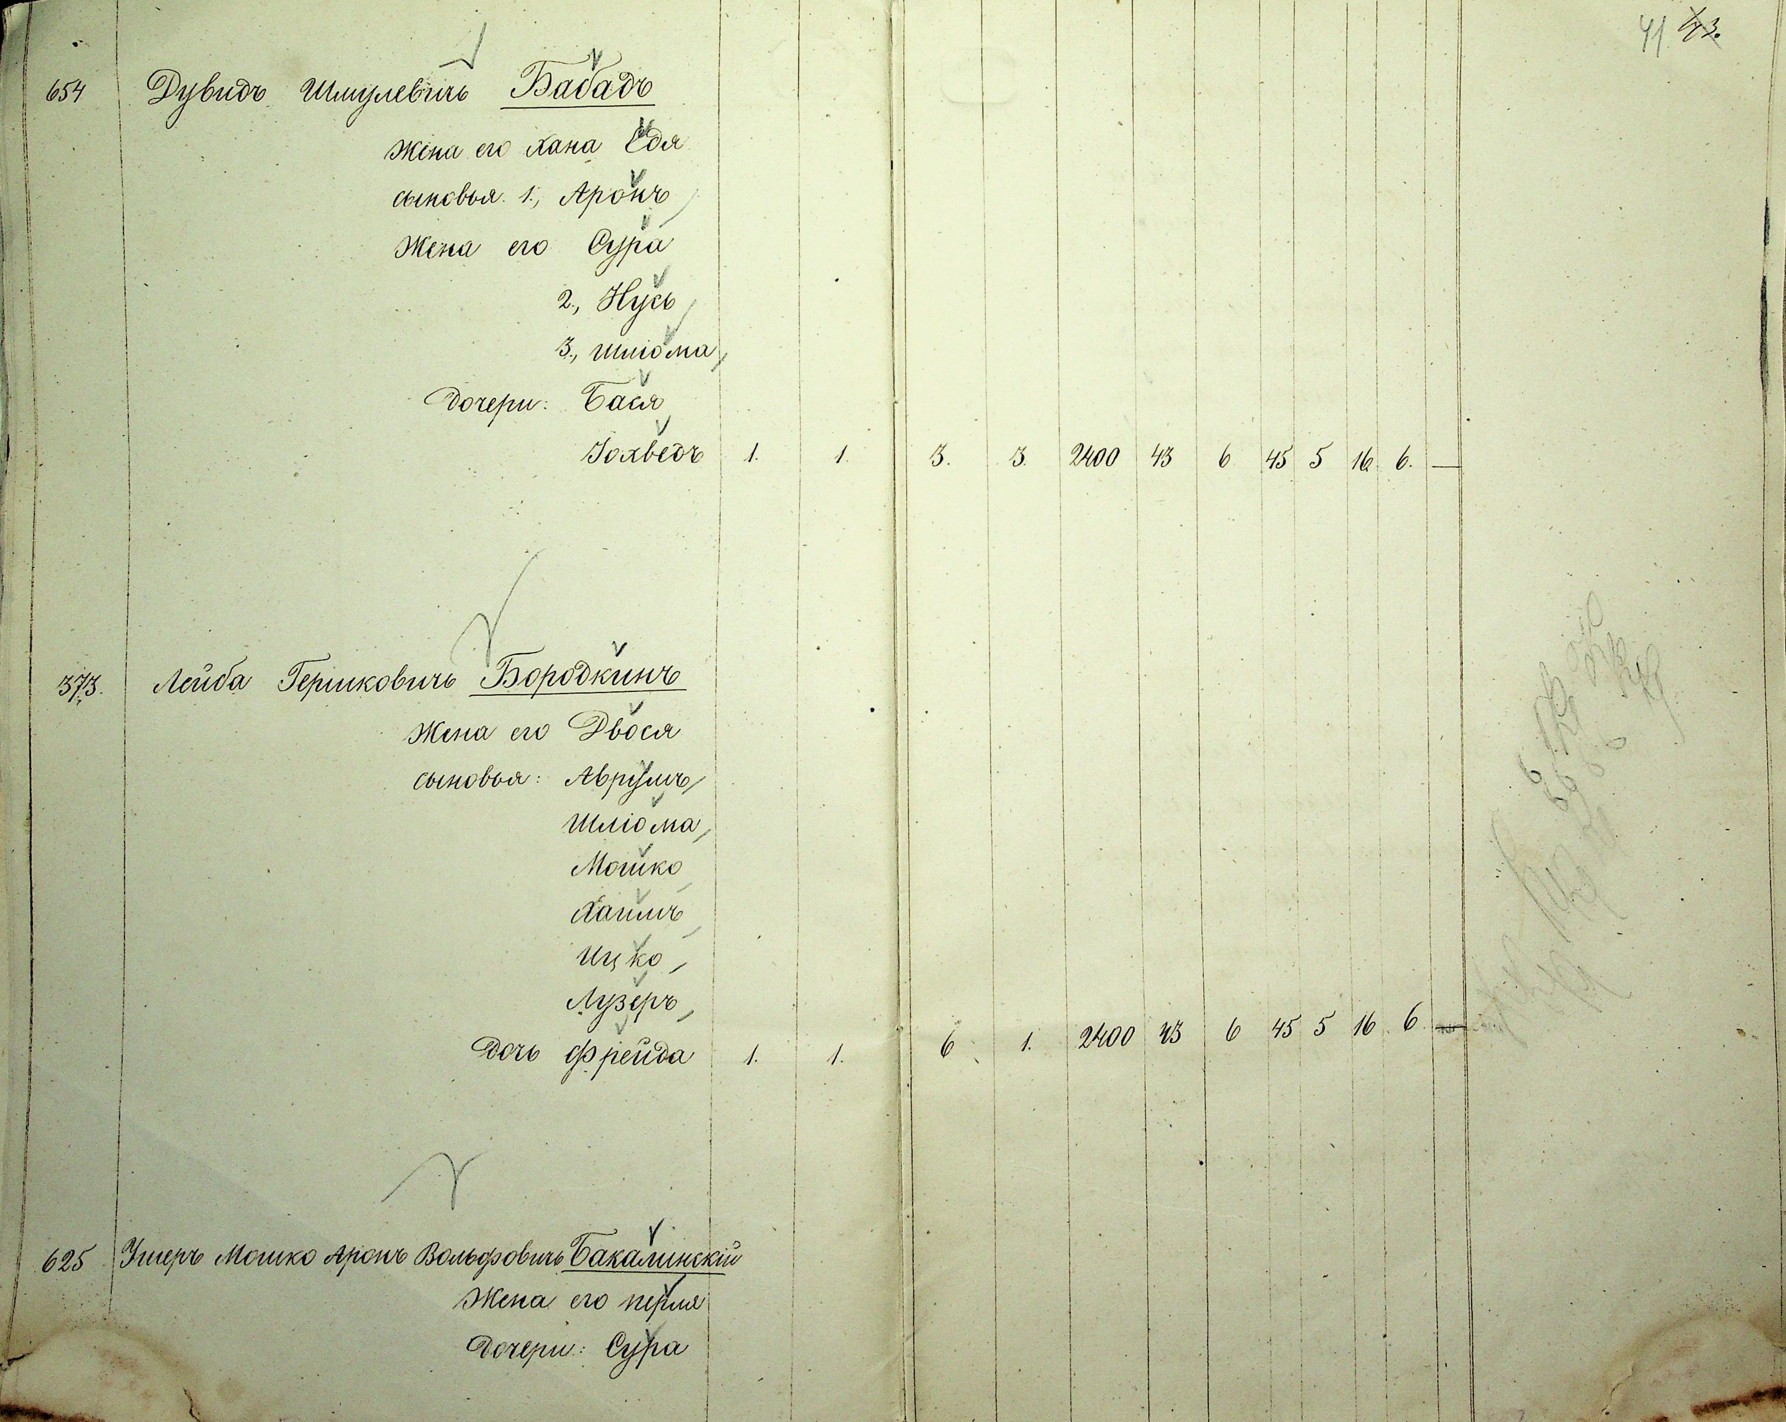 41 43.
654 Дувидъ Шмулевичъ Бабадъ
Жена его Хана Едя
сыновья 1., Аронъ,
Жена его Сура
2., Нусь,
3., Шлiома,
Дочери: Бася
Iохведъ 1. 1. 3. 3. 2400 43 6 45 5 16 6. —
373. Лейба Гершковичъ Бородкинъ
Жена его Двося
сыновья: Аврумъ,
Шлiома,
Мошко,
Хаимъ,
Ицко,
Лузеръ,
Дочь Фрейда 1. 1. 6 1. 2400 43 6 45 5 16 6 —
625 Ушеръ Мошко Аронъ Вольфовичъ Бакалинскiй
Жена его Перля
Дочери: Сура